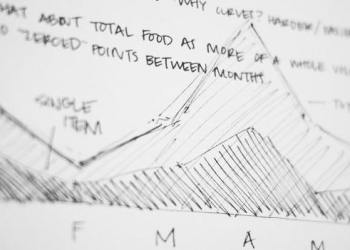 WHY CURVE? HARDER/
WHAT ABOUT TOTAL FOOD AS MORE OF A WHOLE
"ZEROED" POINTS BETWEEN MONTHS
SINGLE
ITEM
F M A M